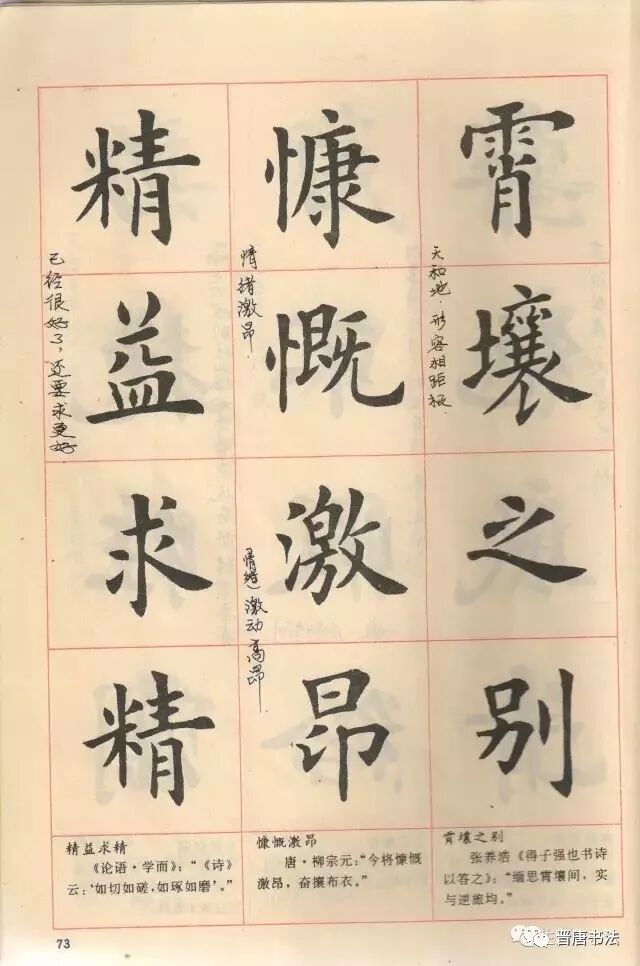 霄壤之别
天和地.形容相距极
慷慨激昂
情绪激昂.
情绪激动高昂
精益求精
已经很好了,还要求更好
精益求精
《论语·学而》：“《诗》
云：‘如切如磋，如琢如磨’。”
慷慨激昂
唐·柳宗元：“今将慷慨
激昂，奋攘布衣。”
霄壤之别
张养浩《得子强也书诗
以答之》：“缅思霄壤间，实
与逆旅均。”
73
晋唐书法